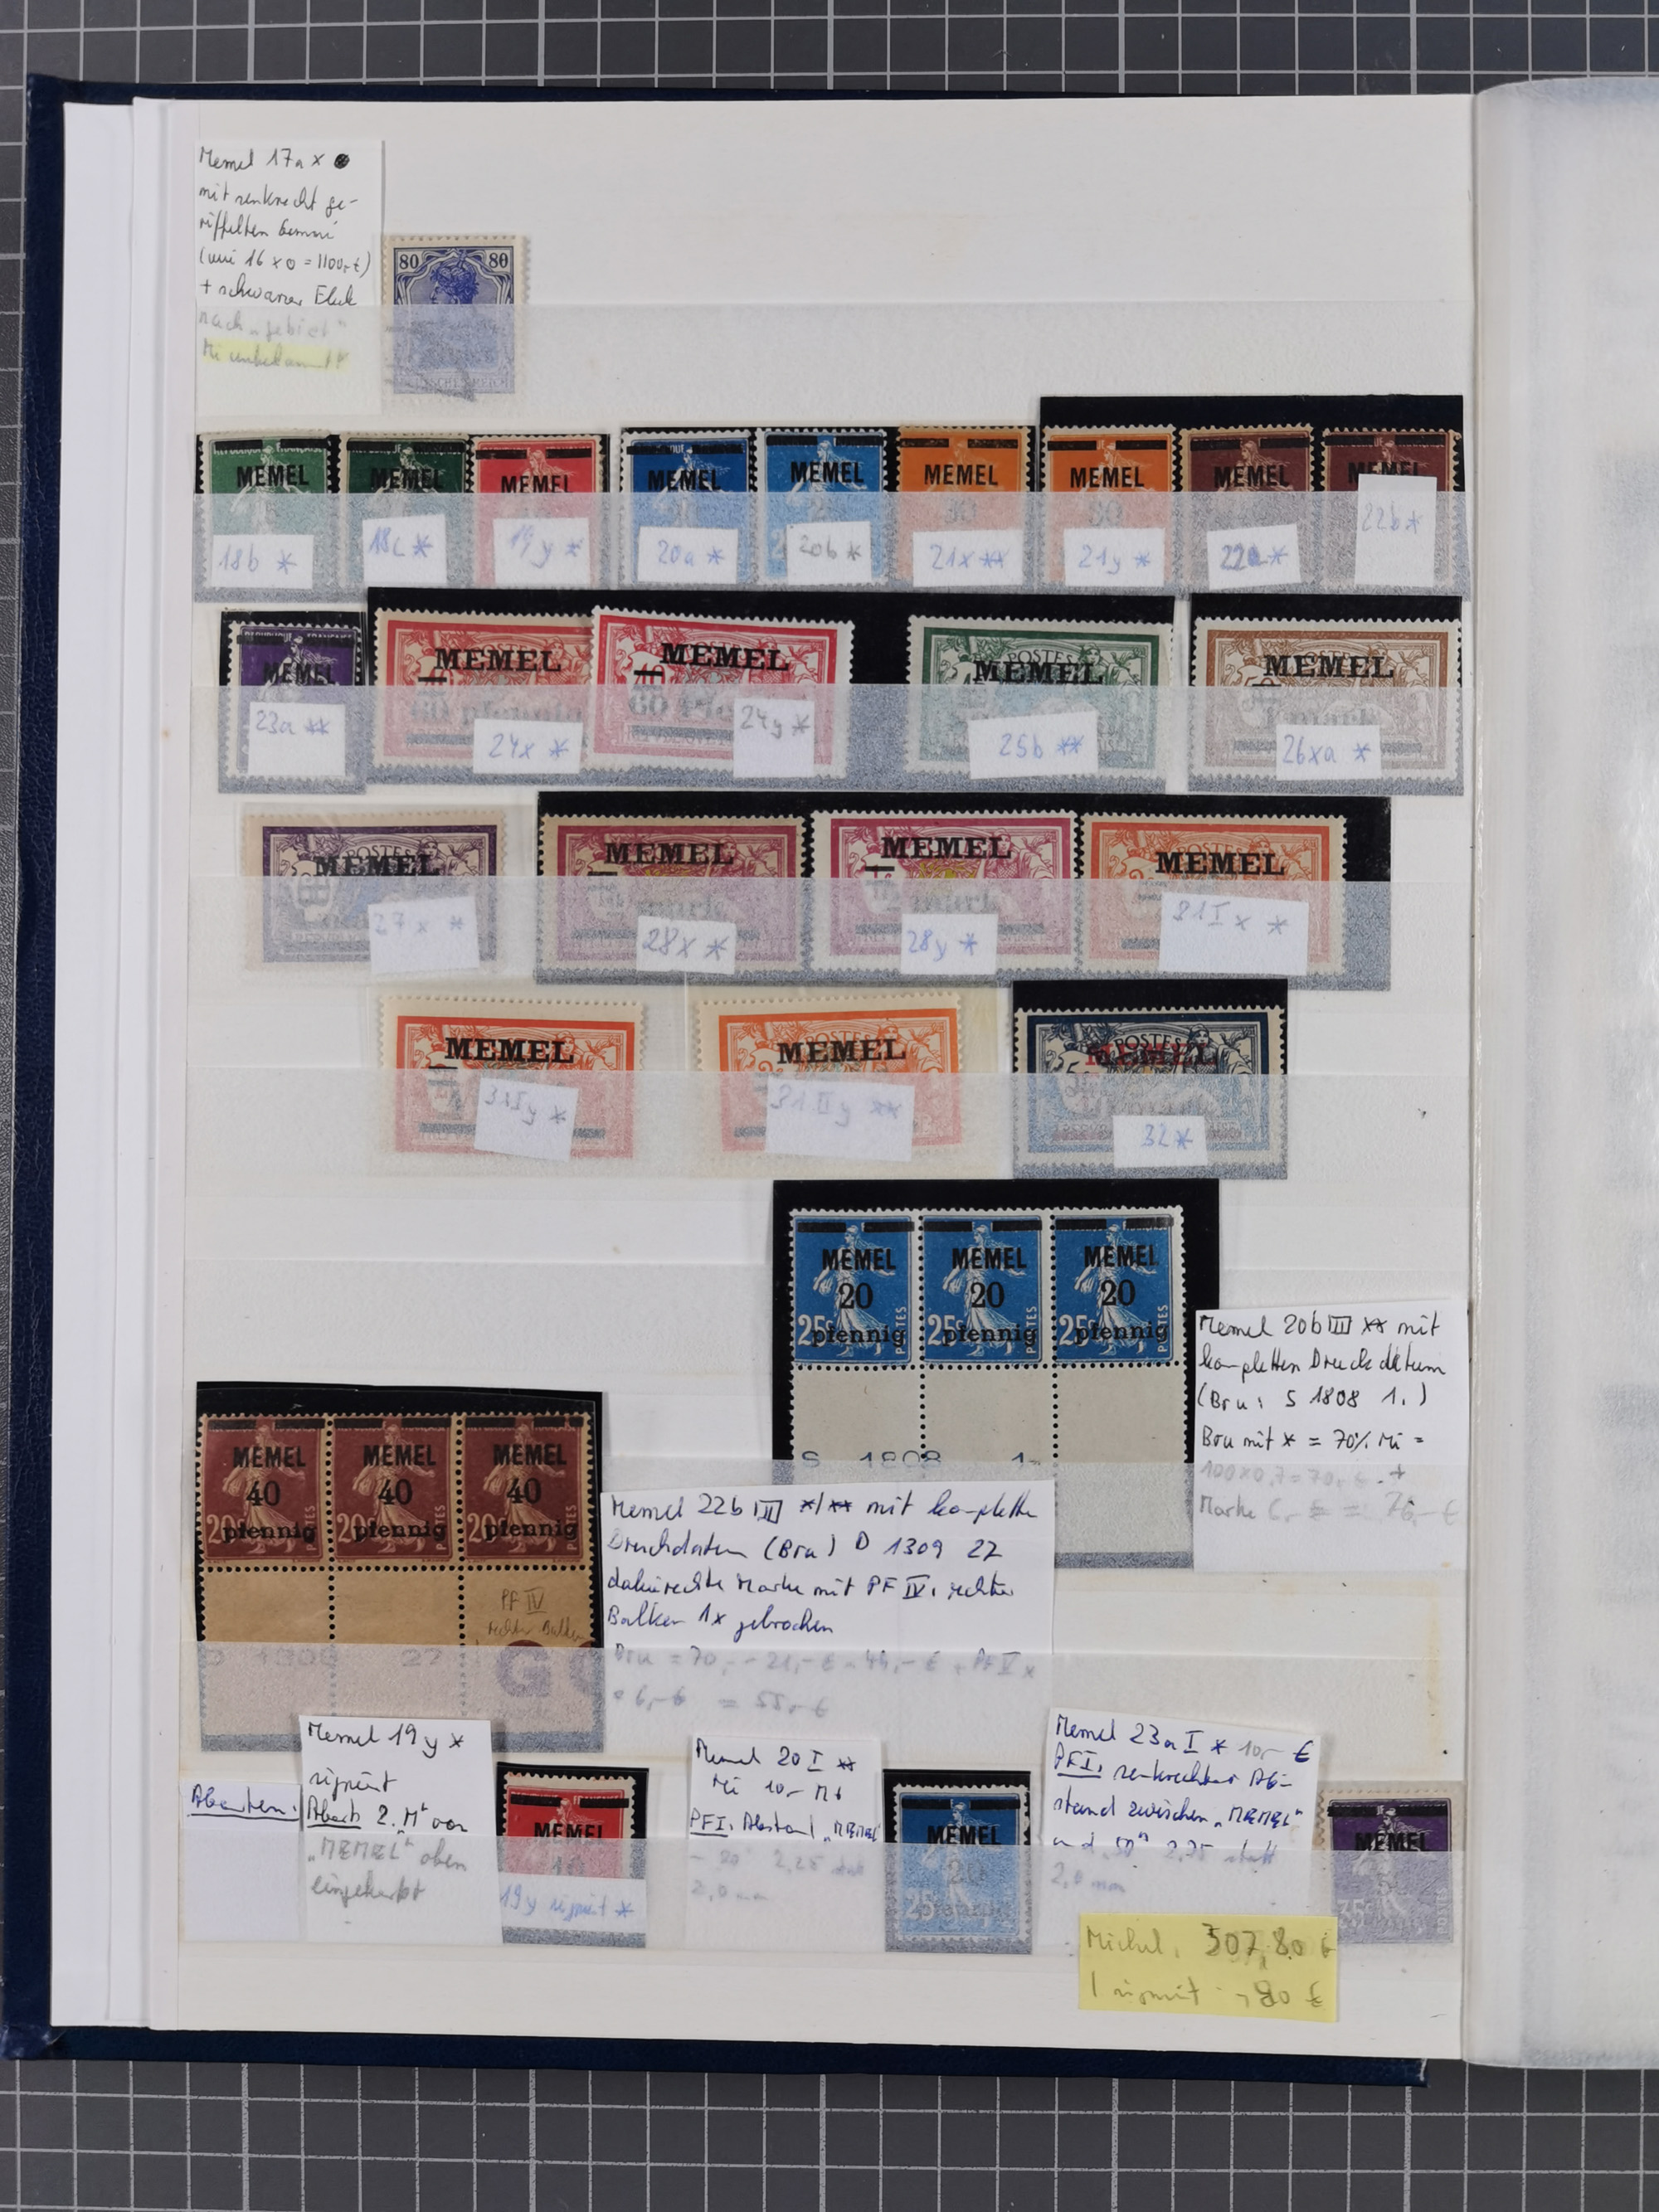 Memel 17a x
mit senkrecht ge-
riffelten Gummi
(wie 16 x o = 1100,- €)
+ schwarzer Fleck
nach „gebiet"
Mi unbekannt!
80 80
MEMEL
MEMEL
MEMEL
MEMEL
MEMEL
MEMEL
MEMEL
MEMEL
MEMEL
18b *
18c *
19y *
20a *
20b *
21x **
21y *
22a *
22b *
MEMEL
MEMEL
MEMEL
POSTES
MEMEL
POSTES
MEMEL
60 pfennig
60
23a **
24x *
24y *
25b **
26xa *
POSTES
MEMEL
MEMEL
MEMEL
MEMEL
mark
mark
27x *
28x *
28y *
31 I x *
MEMEL
MEMEL
POSTES
MEMEL
31 I y *
31 II y **
32 *
MEMEL MEMEL MEMEL
20 20 20
25c 25c 25c
pfennig pfennig pfennig
POSTES POSTES
S 1808 1
Memel 20b III ** mit
kompletten Druckdatum
(Bru: S 1808 1.)
Bru mit * = 70% Mi =
100x0,7=70,- € +
Marke 6,- € = 76,- €
MEMEL MEMEL MEMEL
40 40 40
20c 20c 20c
pfennig pfennig pfennig
PF IV
rechter Balken
D 1309 27
G
Memel 22b III */** mit komplette
Druckdaten (Bru) D 1309 27
dabei rechte Marke mit PF IV: rechter
Balken 1x gebrochen
= 55,- €
Abarten:
Memel 19y *
signiert
Abart: 2. „M" von
„MEMEL" oben
eingekerbt
MEMEL
10
19y signiert *
Memel 20 I **
Mi 10,-
PF I: Abstand „MEMEL"
- 20 2,25 statt
2,0 mm
MEMEL
20
25c
pfennig
Memel 23a I * 10,- €
PF I: senkrechter Ab-
stand zwischen „MEMEL"
und „50" 2,25 statt
2,0 mm
MEMEL
Michel: 507,80 €
1 signiert